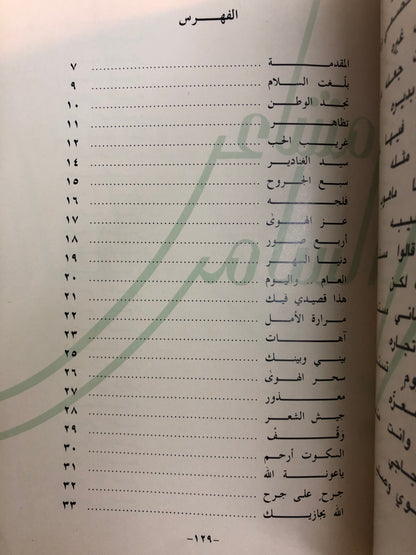 الفهرس
المقدمة ٧
بلّغت السلام ٩
نجد الوطن ١٠
تظاهر ١١
غريب الحب ١٢
سيد الغنادير ١٤
سبع الجروح ١٥
فلجه ١٦
عز الهوىٰ ١٧
أربع صور ١٨
دنيا المهر ١٩
العام .. واليوم ٢٠
هذا قصيدي فيك ٢١
مرارة الأمل ٢٢
آهات ٢٣
بيني وبينك ٢٥
سحر الهوىٰ ٢٦
معذور ٢٧
جيش الشعر ٢٨
وقفْ ٢٩
السكوت أرحم ٣٠
باعونة الله ٣١
جرحٍ على جرح ٣٢
الله يجازيك ٣٣
-١٢٩-
مشاعر